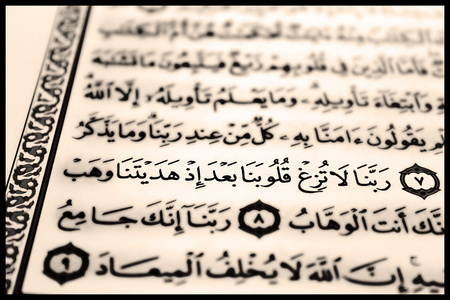 مُّحْكَمَٰتٌ هُنَّ أُمُّ الْكِتَٰبِ
فَأَمَّا الَّذِينَ فِي قُلُوبِهِمْ زَيْغٌ فَيَتَّبِعُونَ مَا تَشَٰبَهَ
وَابْتِغَآءَ تَأْوِيلِهِۦ وَمَا يَعْلَمُ تَأْوِيلَهُۥٓ إِلَّا اللَّهُ
يَقُولُونَ ءَامَنَّا بِهِۦ كُلٌّ مِّنْ عِندِ رَبِّنَا وَمَا يَذَّكَّرُ
٧ رَبَّنَا لَا تُزِغْ قُلُوبَنَا بَعْدَ إِذْ هَدَيْتَنَا وَهَبْ
نَّكَ أَنتَ الْوَهَّابُ ٨ رَبَّنَآ إِنَّكَ جَامِعُ
فِيهِ إِنَّ اللَّهَ لَا يُخْلِفُ الْمِيعَادَ ٩